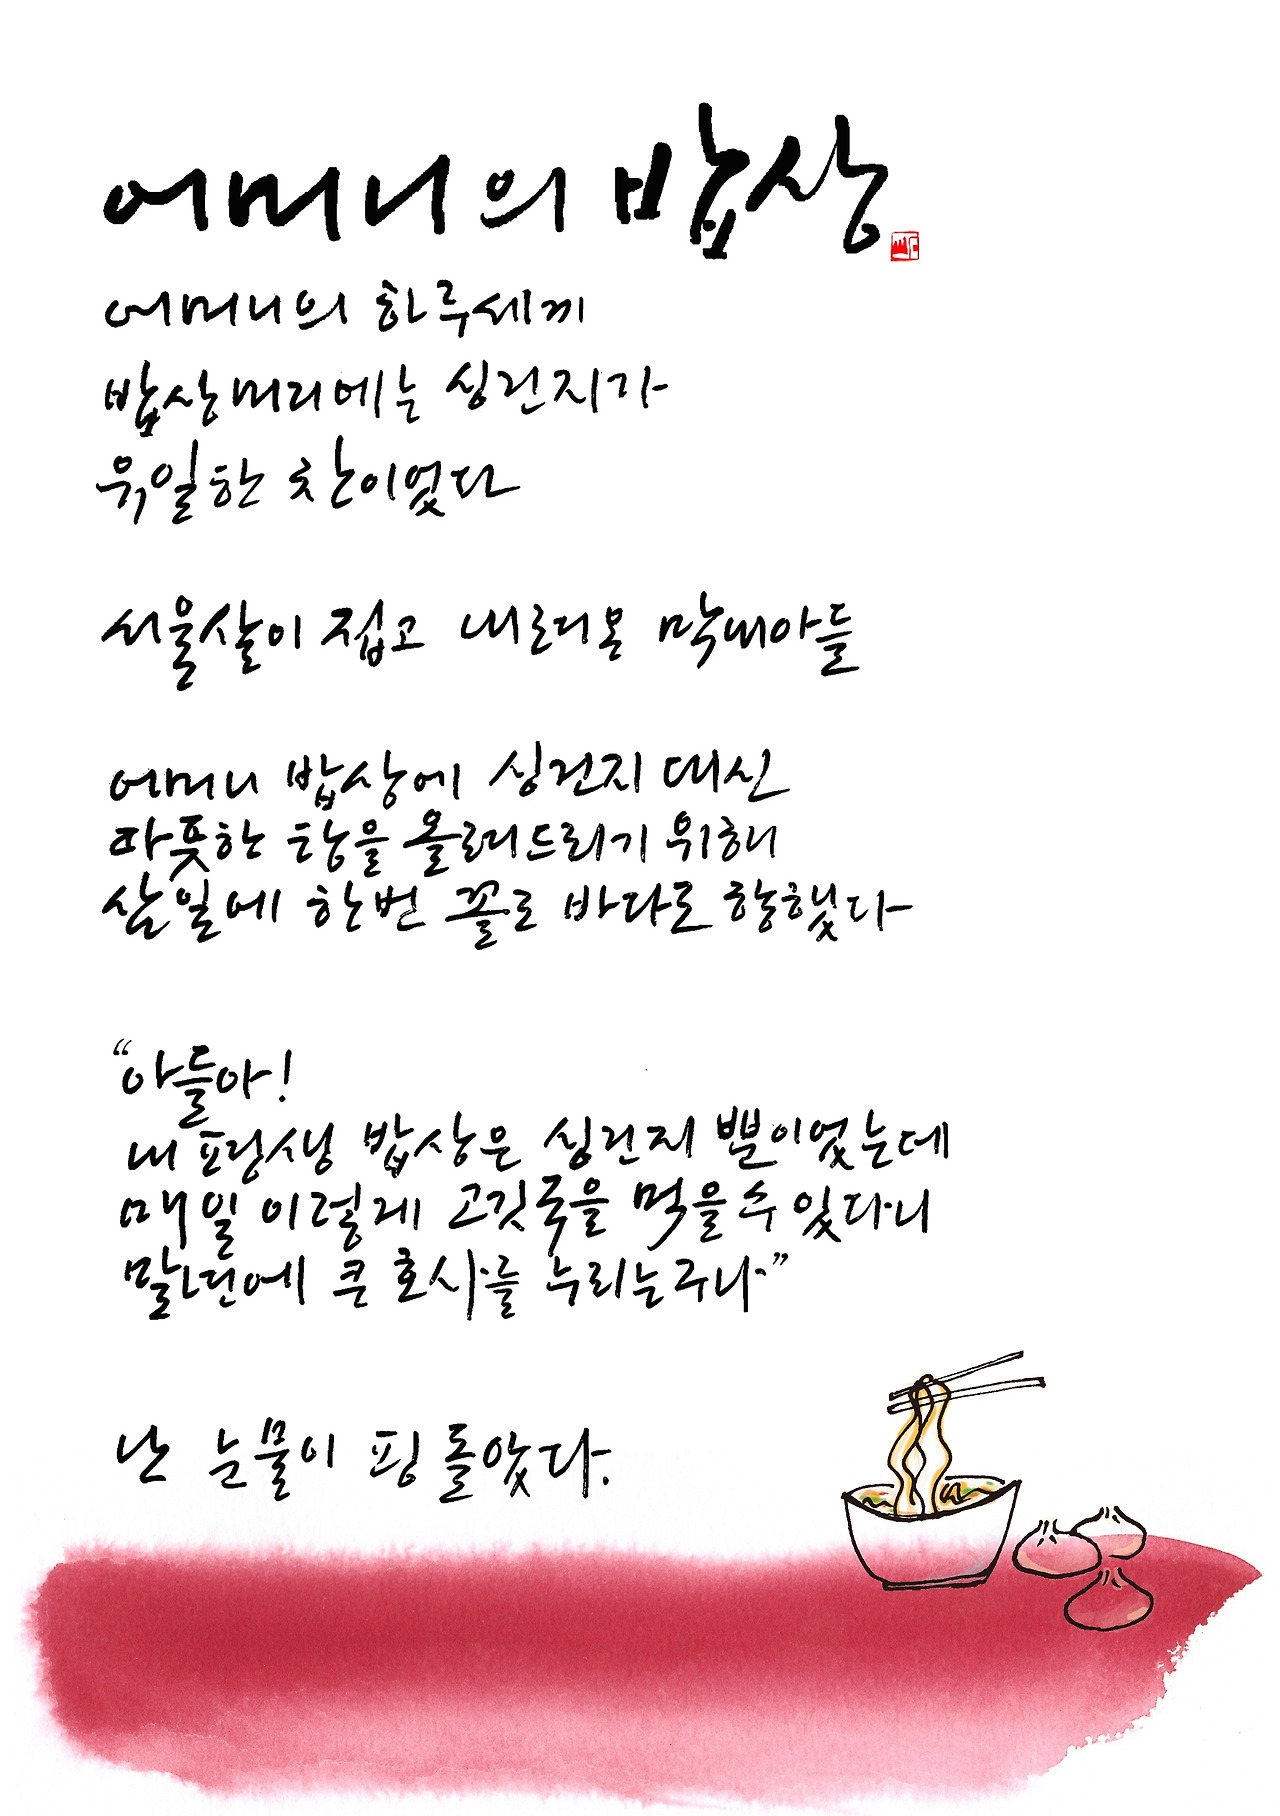 어머니의 밥상
어머니의 하루세끼
밥상머리에는 싱건지가
유일한 찬이었다
서울살이 접고 내려온 막내아들
어머니 밥상에 싱건지 대신
따뜻한 탕을 올려드리기 위해
삼일에 한번 꼴로 바다로 향했다
“아들아!
내 평생 밥상은 싱건지 뿐이었는데
매일 이렇게 고깃국을 먹을수 있다니
말년에 큰 호사를 누리는구나”
난 눈물이 핑 돌았다.